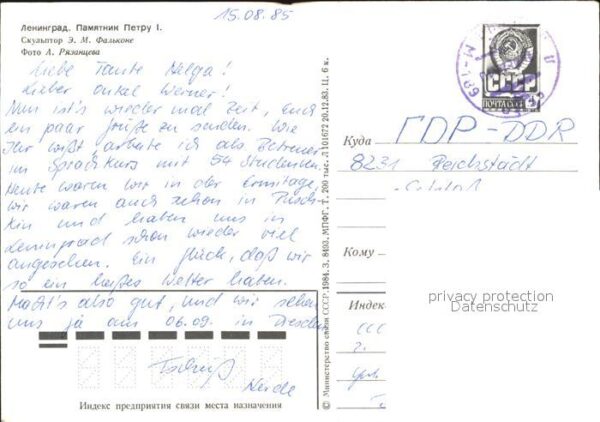 15.08.85
Ленинград. Памятник Петру I.
Скульптор Э. М. Фальконе
Фото А. Рязанцева
Liebe Tante Helga!
Lieber Onkel Werner!
Nun ist's wieder mal Zeit, Euch
ein paar Grüße zu senden. Wie
Ihr wißt arbeite ich als Betreuer
im Sprachkurs mit 54 Studenten.
Heute waren wir in der Ermitage,
wir waren auch schon in Pusch-
kin und haben uns in
Leningrad schon wieder viel
angesehen. Ein Glück, daß wir
so ein heißes Wetter haben.
Macht's also gut, und wir sehen
uns ja am 06.09. in Dresden
Tschüß
Heide
Индекс предприятия связи места назначения
© Министерство связи СССР. 1984. З. 8403. МПФГ. Т. 200 тыс. Л 101672 20.12.83. Ц. 6 к.
СССР
ПОЧТА СССР
Куда ГДР-DDR
8231 Reichstädt
Кому
Индекс
privacy protection
Datenschutz
ССС